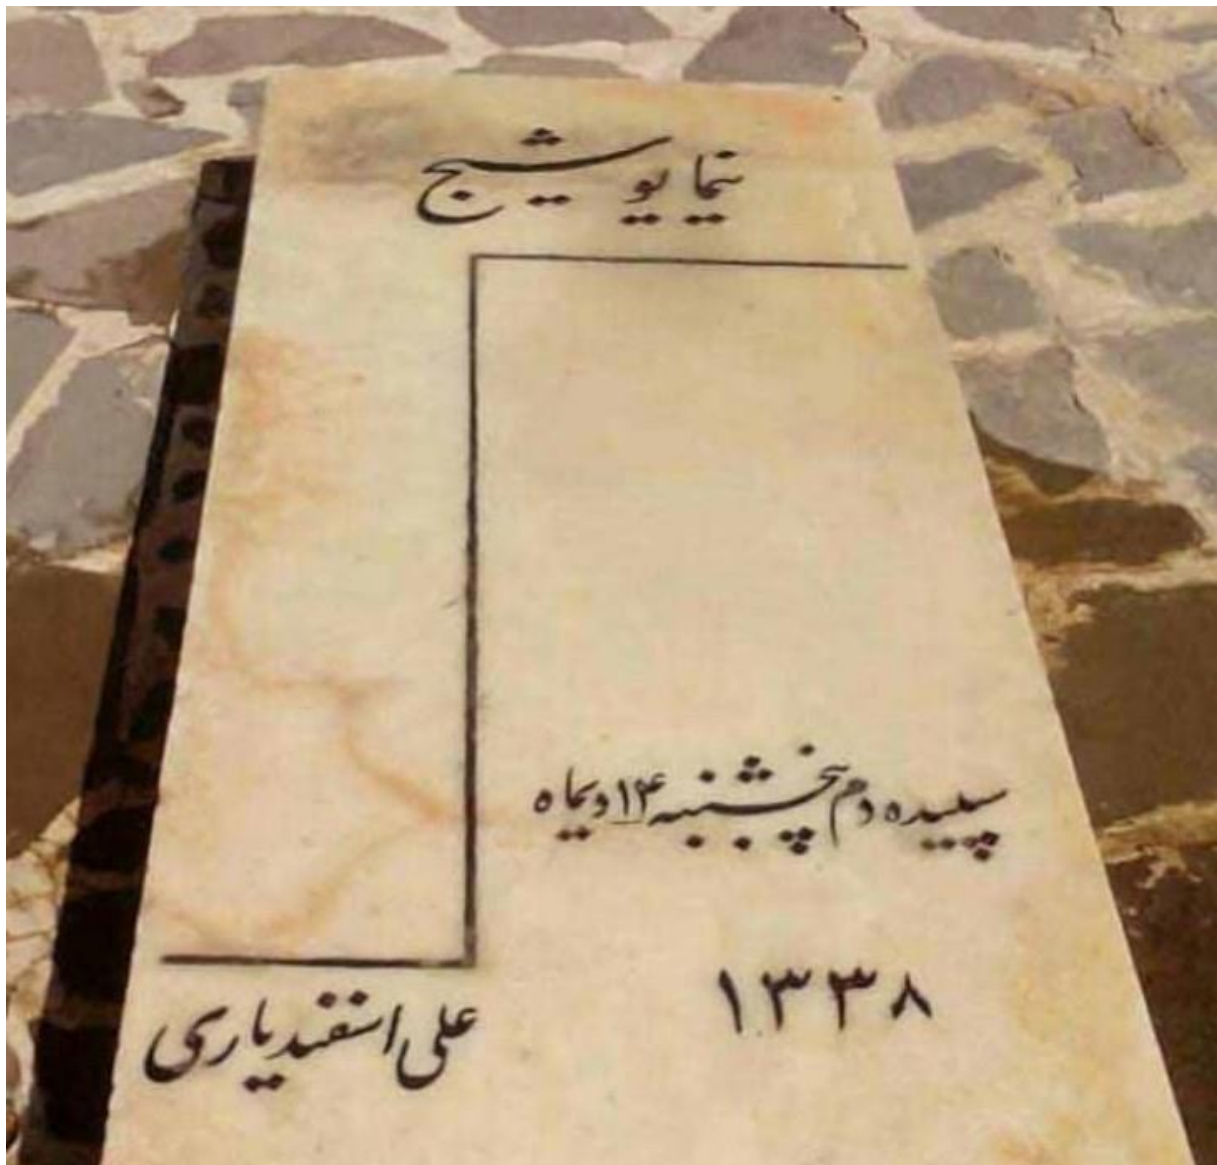 نیما یوشیج
سپیده دم پنجشنبه ۱۴ دیماه
۱۳۳۸
علی اسفندیاری